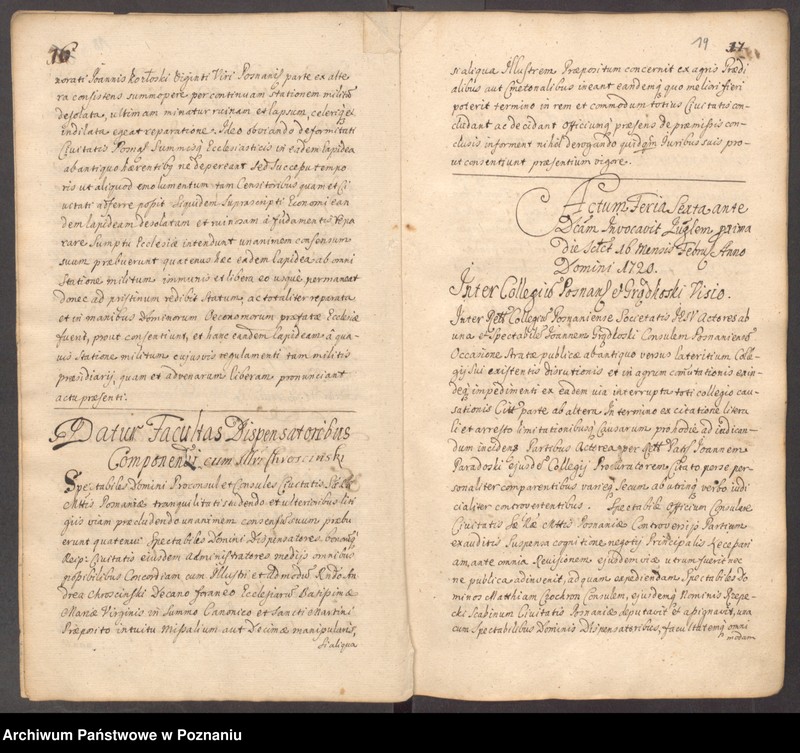 16
norati Joannis Kozłoski Viginti Viri Posnaniensis parte ex alte
ra consistens summopere per continuam stationem militum
desolata, ultimam minatur ruinam et lapsum, celeriq3 et
indilata egeat reparatione. Ideo obviando deformitati
Civitatis Posnae Summisq3 Ecclesiasticis in eadem lapidea
ab antiquo haerentibq ne depereant sed successu tempo
ris ut aliquod emolumentum tam Censitoribus quam et Ci
vitati adferre possit. Siquidem suprascripti Economi ean
dem lapideam desolatam et ruinosam à fudamentis repa
rare sumptu Ecclesiae intendunt unanimem consensum
suum praebuerunt quatenus haec eadem lapidea ab omni
statione militum immunis et libera eo usque permaneat
donec ad pristinum redibit statum, ac totaliter reparata
et in manibus dominorum Oeconomorum praefatae Ecclesiae
fuerit, prout consentiunt, et hanc eandem lapideam à qua
vis statione militum cujusvis regulamenti tam militis
praesidiarij, quam et advenarum liberam pronunciant
actu praesenti.
Datur Facultas Dispensatoribus
Componendi cum Illri Chroscinski
Spectabiles Domini Proconsul et Consules Civitatis S. R.
Mttis Posnaniae tranquilitati studendo et ulterioribus liti
gijs viam praecludendo unanimem consensum suum praebu
erunt quatenus Spectabiles Domini Dispensatores bonorum
Reip: Civitatis eiusdem Administratores medijs omnibus
possibilibus Concordiam cum Illustri et admodum Rndo An
drea Chroscinski Decano foraneo Ecclesiarum
Mariae Virginis in Summo Canonico et Sancti Martini
Praeposito intuitu Missalium aut Decimae manipularis,
si aliqua
19 17
si aliqua Illustrem Praepositum concernit ex agris Praedi
alibus aut Cmetonalibus ineant eandemq3 quo meliori fieri
poterit termino in rem et commodum totius Civitatis con
cludant ac decidant officiumq3 praesens de praemissis con
clusis informent nihil derogando quidqm Juribus suis pro
ut consentiunt praesentium vigore.
Actum Feria Sexta ante
Dcam Invocavit Quadglem prima
die Sclct 16 Mensis Febru: Anno
Domini 1720.
Inter Collegium Posnans et Grodkoski Visio.
Inter Rttr Collegium Posnaniense Societatis JESV Actores ab
una et Spectabilem Joannem Grodkoski Consulem Posnaniensem
Occasione Stratae publicae ab antiquo versus lateritium Colle-
gij sui existentis disrutionis et in agrum comutationis exin-
deq3 impedimenti ex eadem via interrupta toti collegio cau-
sationis Citt parte ab altera. In termino ex citatione litera
li et arresto limitationibusq3 Causarum pro hodie ad iudican-
dum incidens. Partibus Actorea per Rtt Patr Joannem
Paradoski ejusdem Collegij Procuratorem Citato porse per-
sonaliter comparentibus varieq3 secum ab utrinq3 verbo iudi
cialiter controvertentibus. Spectabile Officium Consulare
Civitatis Sae Rae Mttis Posnaniae Controversijs Partium
exauditis Suspensa cognitione negotij Principalis Receperi
am, ante omnia Revisionem ejusdem viae utrum fuerit nec
ne publica adinvenit, ad quam expediendam Spectabiles Do
minos Matthiam Czochron Consulem, ejusdemq3 Nominis Rzepe-
cki Scabinum Civitatis Posnaniae deputavit et assignavit, una
cum Spectabilibus Dominis Dispensatoribus, facultatemq3 omni
modam
Archiwum Państwowe w Poznaniu